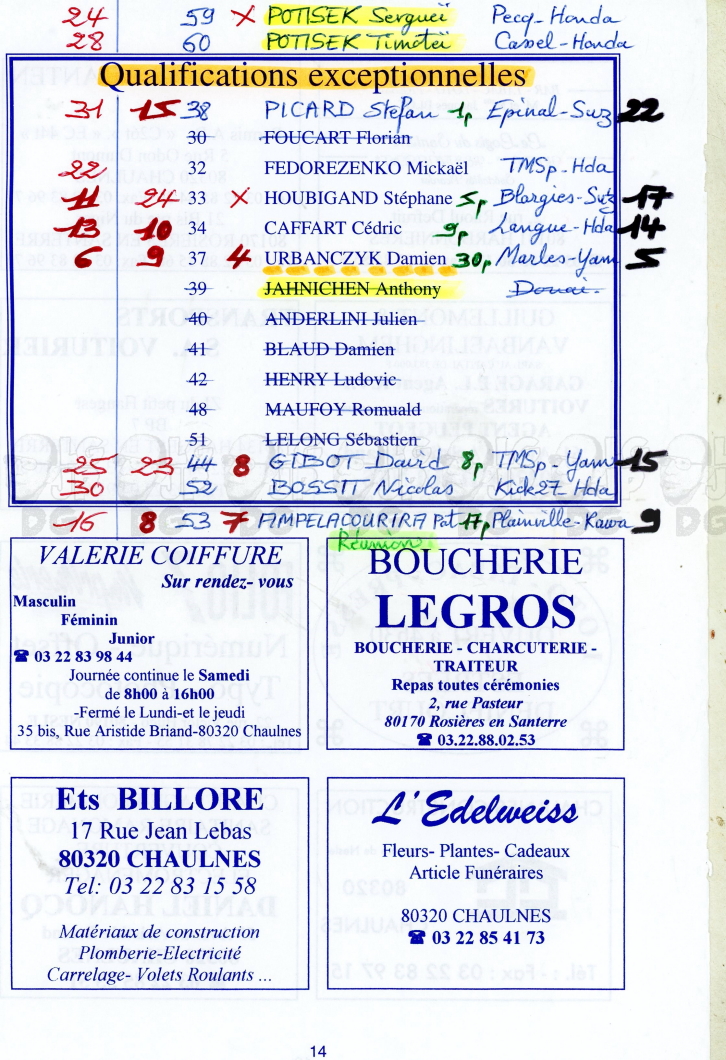 24 59 X POTISEK Sergueï Pecq-Honda
28 60 POTISEK Timoteï Cassel-Honda
Qualifications exceptionnelles
31 15 38 PICARD Stefan 1p Epinal-Suz 22
30 FOUCART Florian
22 32 FEDOREZENKO Mickaël TMSp-Hda
11 24 33 X HOUBIGAND Stéphane 5p Blargies-Suz 17
13 10 34 CAFFART Cédric 9p Langue-Hda 14
6 9 37 4 URBANCZYK Damien 30p Marles-Yam 5
39 JAHNICHEN Anthony Douai.
40 ANDERLINI Julien
41 BLAUD Damien
42 HENRY Ludovic
48 MAUFOY Romuald
51 LELONG Sébastien
25 23 44 8 GIBOT David 8p TMSp-Yam 15
30 52 BOSSIT Nicolas Kick27-Hda
16 8 53 7 AMPELACOURIRA Pat 17p Plainville-Kawa 9
Réunion.
VALERIE COIFFURE
Sur rendez- vous
Masculin
Féminin
Junior
☎ 03 22 83 98 44
Journée continue le Samedi
de 8h00 à 16h00
-Fermé le Lundi-et le jeudi
35 bis, Rue Aristide Briand-80320 Chaulnes
BOUCHERIE
LEGROS
BOUCHERIE - CHARCUTERIE -
TRAITEUR
Repas toutes cérémonies
2, rue Pasteur
80170 Rosières en Santerre
☎ 03.22.88.02.53
Ets BILLORE
17 Rue Jean Lebas
80320 CHAULNES
Tel: 03 22 83 15 58
Matériaux de construction
Plomberie-Electricité
Carrelage- Volets Roulants ...
L'Edelweiss
Fleurs- Plantes- Cadeaux
Article Funéraires
80320 CHAULNES
☎ 03 22 85 41 73
14